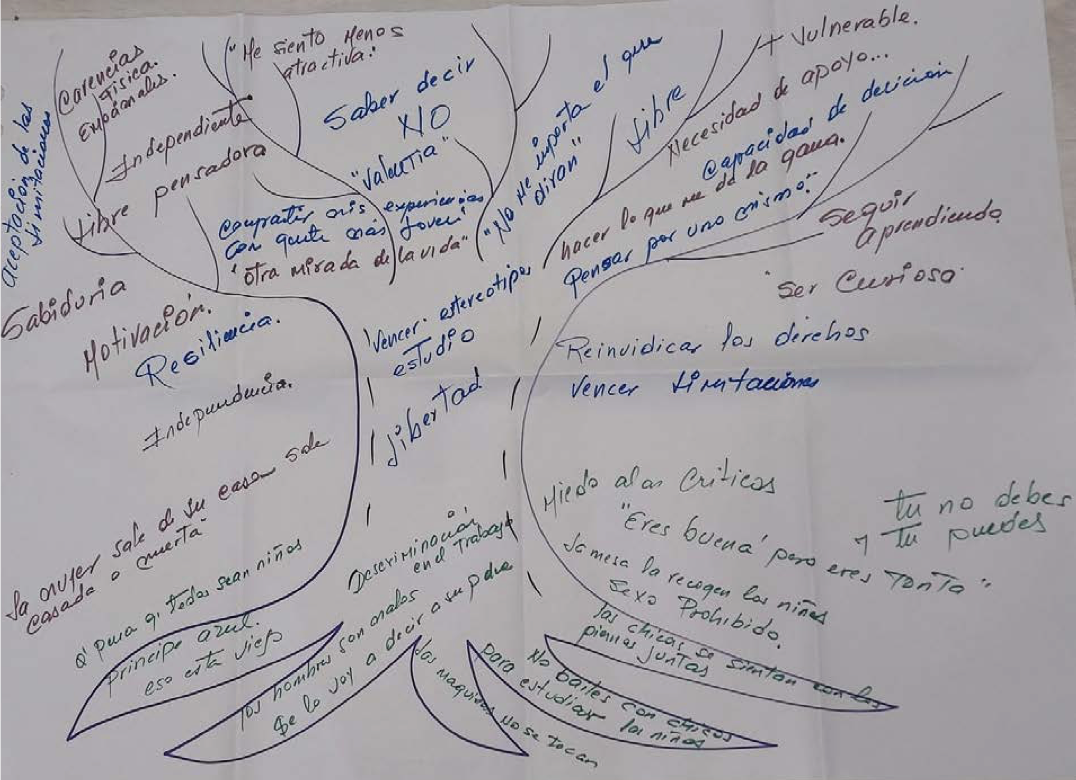 Aceptación de las
limitaciones
Carencias
física.
Expánales.
"Me siento menos
atractiva!
Independiente
Libre pensadora
Saber decir
NO
"Valentia"
Compartir mis experiencias
con gente más joven!
"otra mirada de la vida"
"No me importa el que
diran"
Libre
+ Vulnerable.
Necesidad de apoyo...
Capacidad de decición
hacer lo que me da la gana.
Pensar por uno mismo."
Seguir
aprendiendo
Ser Curiosa
Sabiduria
Motivación.
Resiliencia.
Independencia.
Vencer estereotipos
estudio
Libertad
Reinvidicar los derechos
Vencer limitaciones
La mujer sale de su casa sale
casada o muerta
Miedo a las Criticas
"Eres buena' pero eres Tonta"
Tu no debes
y Tu puedes
La mesa la recogen las niñas
Sexo Prohibido.
Descriminación
en el trabajo
Q' pena q' todas sean niñas
principe azul.
eso esta viejo
Los hombres son malos
se lo voy a decir a su padre
Las maquinas no se tocan
No bailes con chicos
para estudiar los niños
Las chicas se sientan con las
piernas juntas